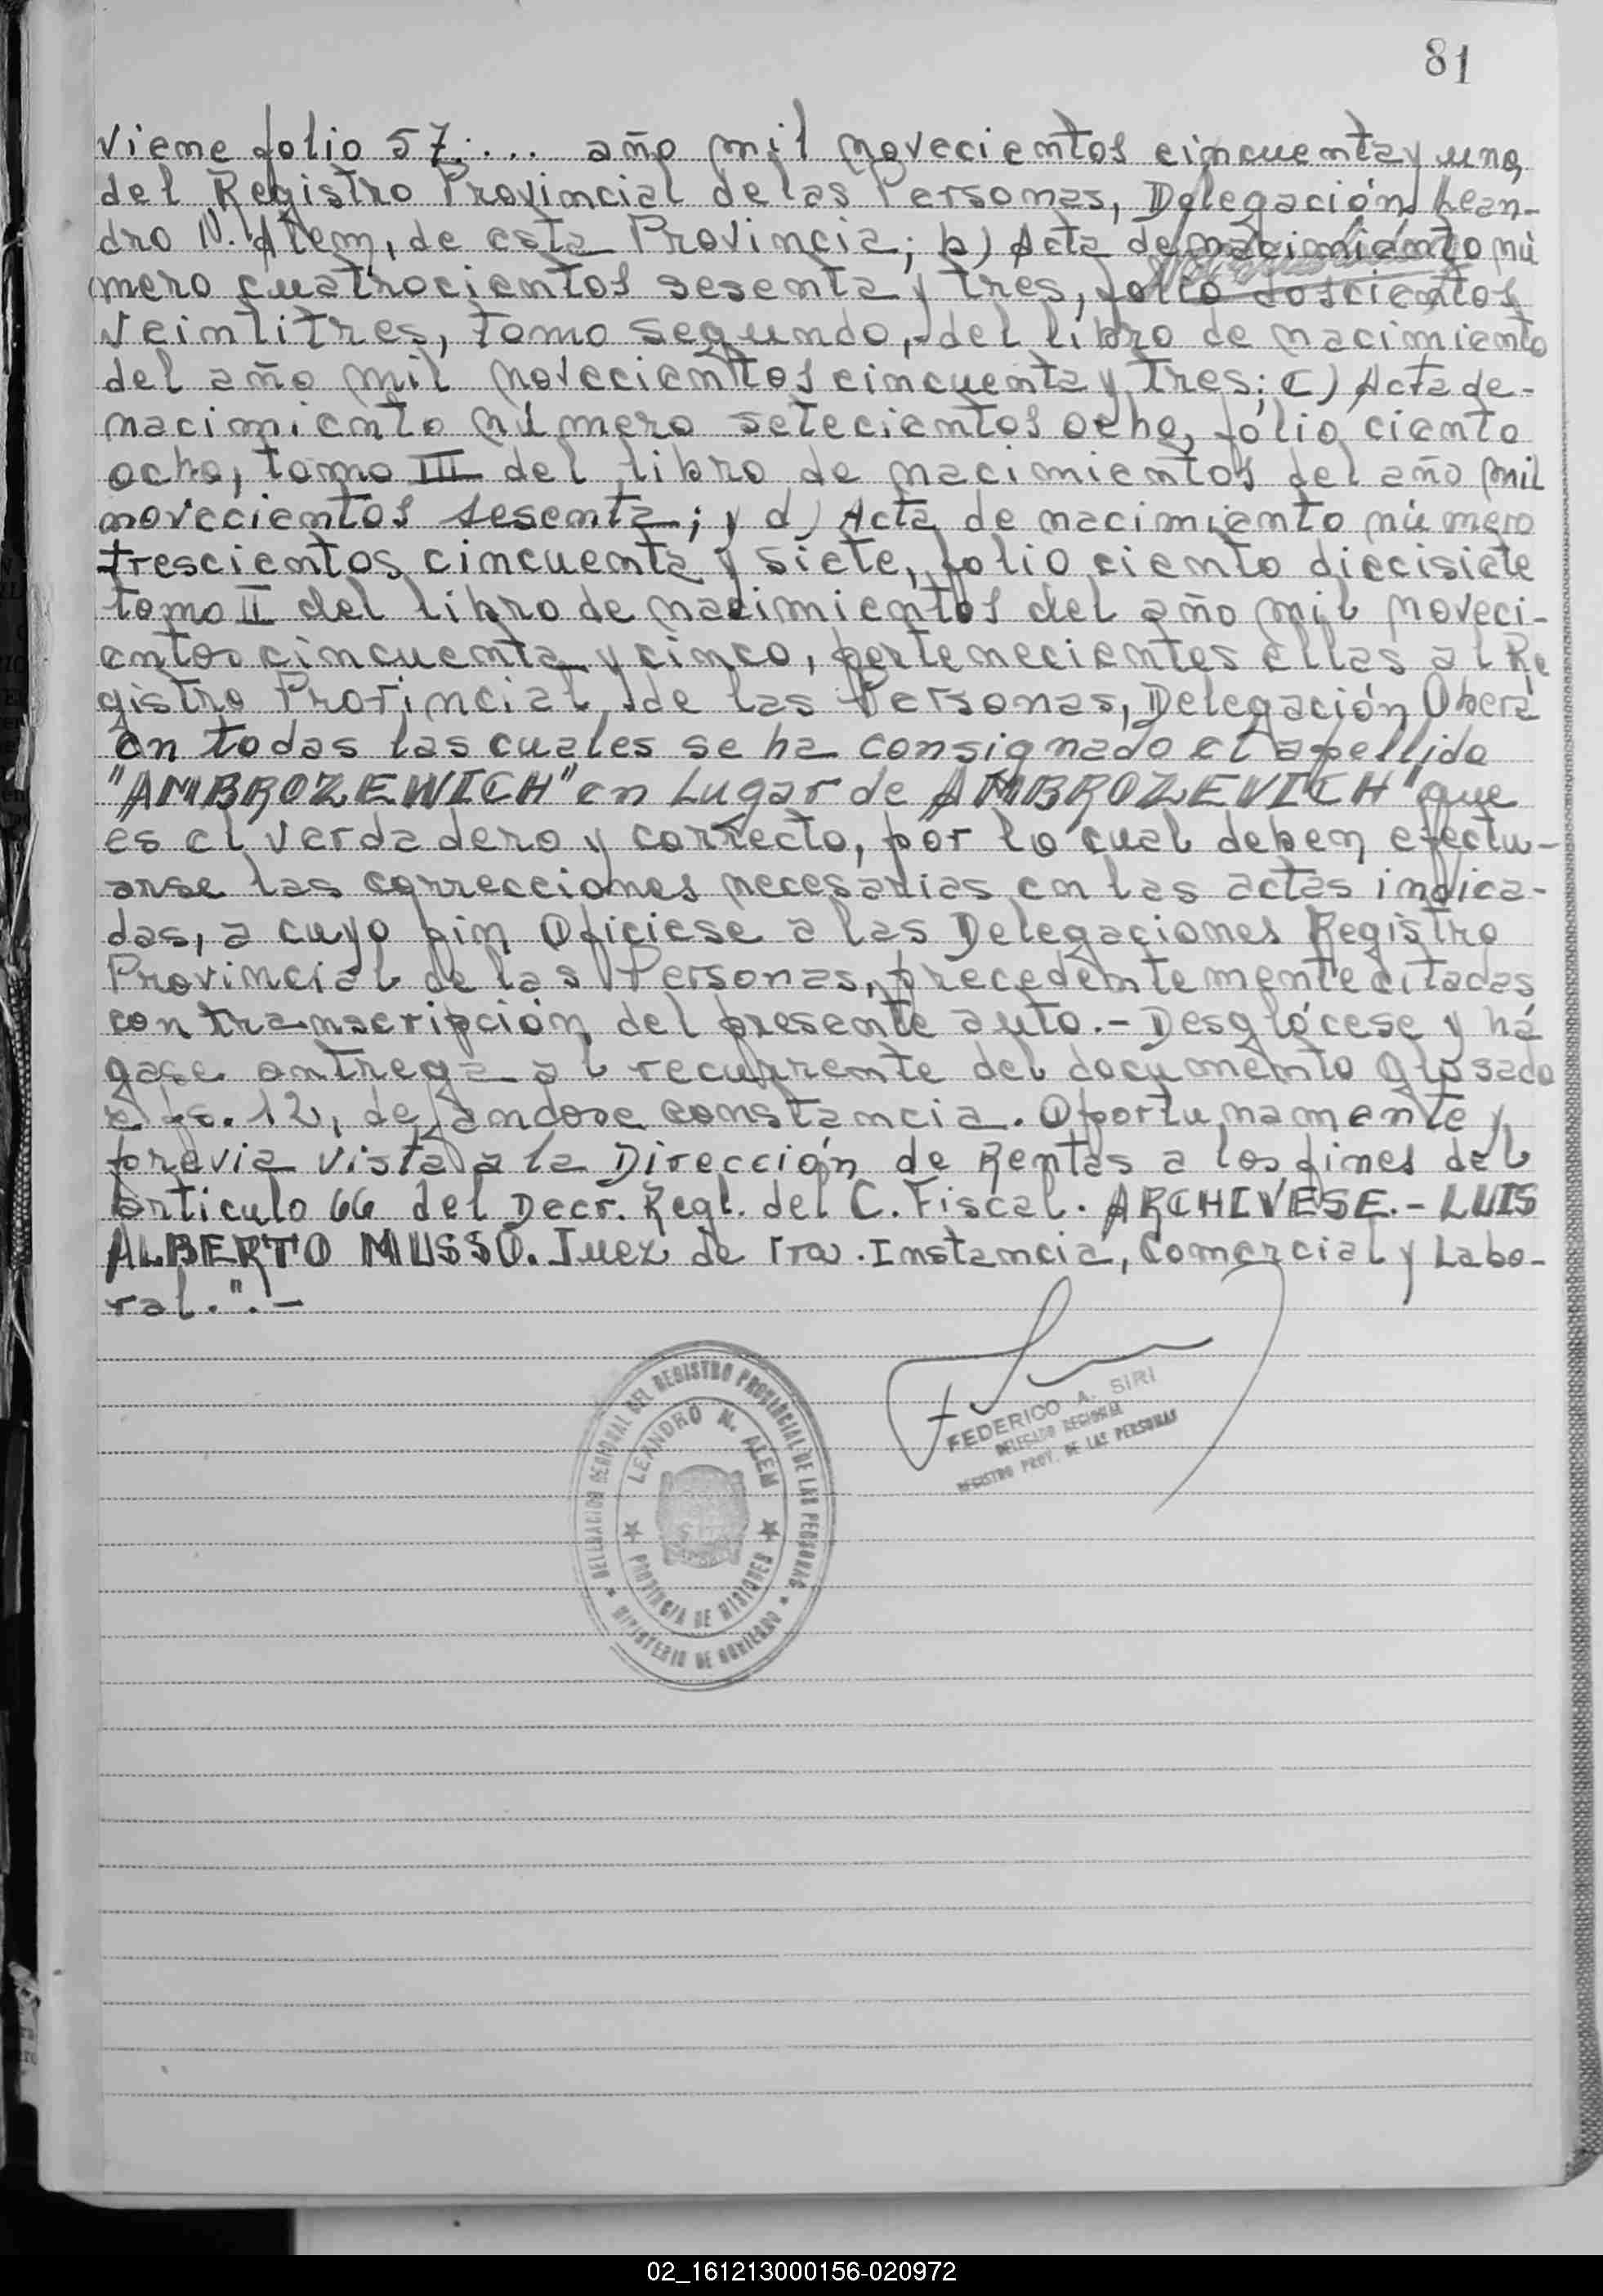 81
viene folio 57.... año mil novecientos cincuenta y uno,
del Registro Provincial de las Personas, Delegación Lean-
dro N. Alem, de esta Provincia; b) Acta de nacimiento nú
mero cuatrocientos sesenta y tres, folio doscientos
veintitres, tomo segundo, del libro de nacimiento
del año mil novecientos cincuenta y tres; c) Acta de-
nacimiento número setecientos ocho, folio ciento
ocho, tomo III del libro de nacimientos del año mil
novecientos sesenta; y d) Acta de nacimiento número
trescientos cincuenta y siete, folio ciento diecisiete
tomo II del libro de nacimientos del año mil noveci-
entos cincuenta y cinco, pertenecientes ellas al Re
gistro Provincial de las Personas, Delegación Oberá
en todas las cuales se ha consignado el apellido
"AMBROZEWICH" en Lugar de AMBROZEVICH" que
es el verdadero y correcto, por lo cual deben efectu-
arse las correcciones necesarias en las actas indica-
das, a cuyo fin Ofíciese a las Delegaciones Registro
Provincial de las Personas, precedentemente citadas
con transcripción del presente auto.- Desglócese y há
gase entrega al recurrente del documento glosado
a fs. 12, dejándose constancia. Oportunamente y
previa vista a la Dirección de Rentas a los fines del
artículo 66 del Decr. Regl. del C. Fiscal. ARCHIVESE.- LUIS
ALBERTO MUSSO. Juez de 1ra. Instancia, Comercial y Labo-
ral.".-
DELEGACION REGIONAL DEL REGISTRO PROVINCIAL DE LAS PERSONAS
LEANDRO N. ALEM
PROVINCIA DE MISIONES
MINISTERIO DE GOBIERNO
FEDERICO A. SIRI
DELEGADO REGIONAL
REGISTRO PROV. DE LAS PERSONAS
02_161213000156-020972